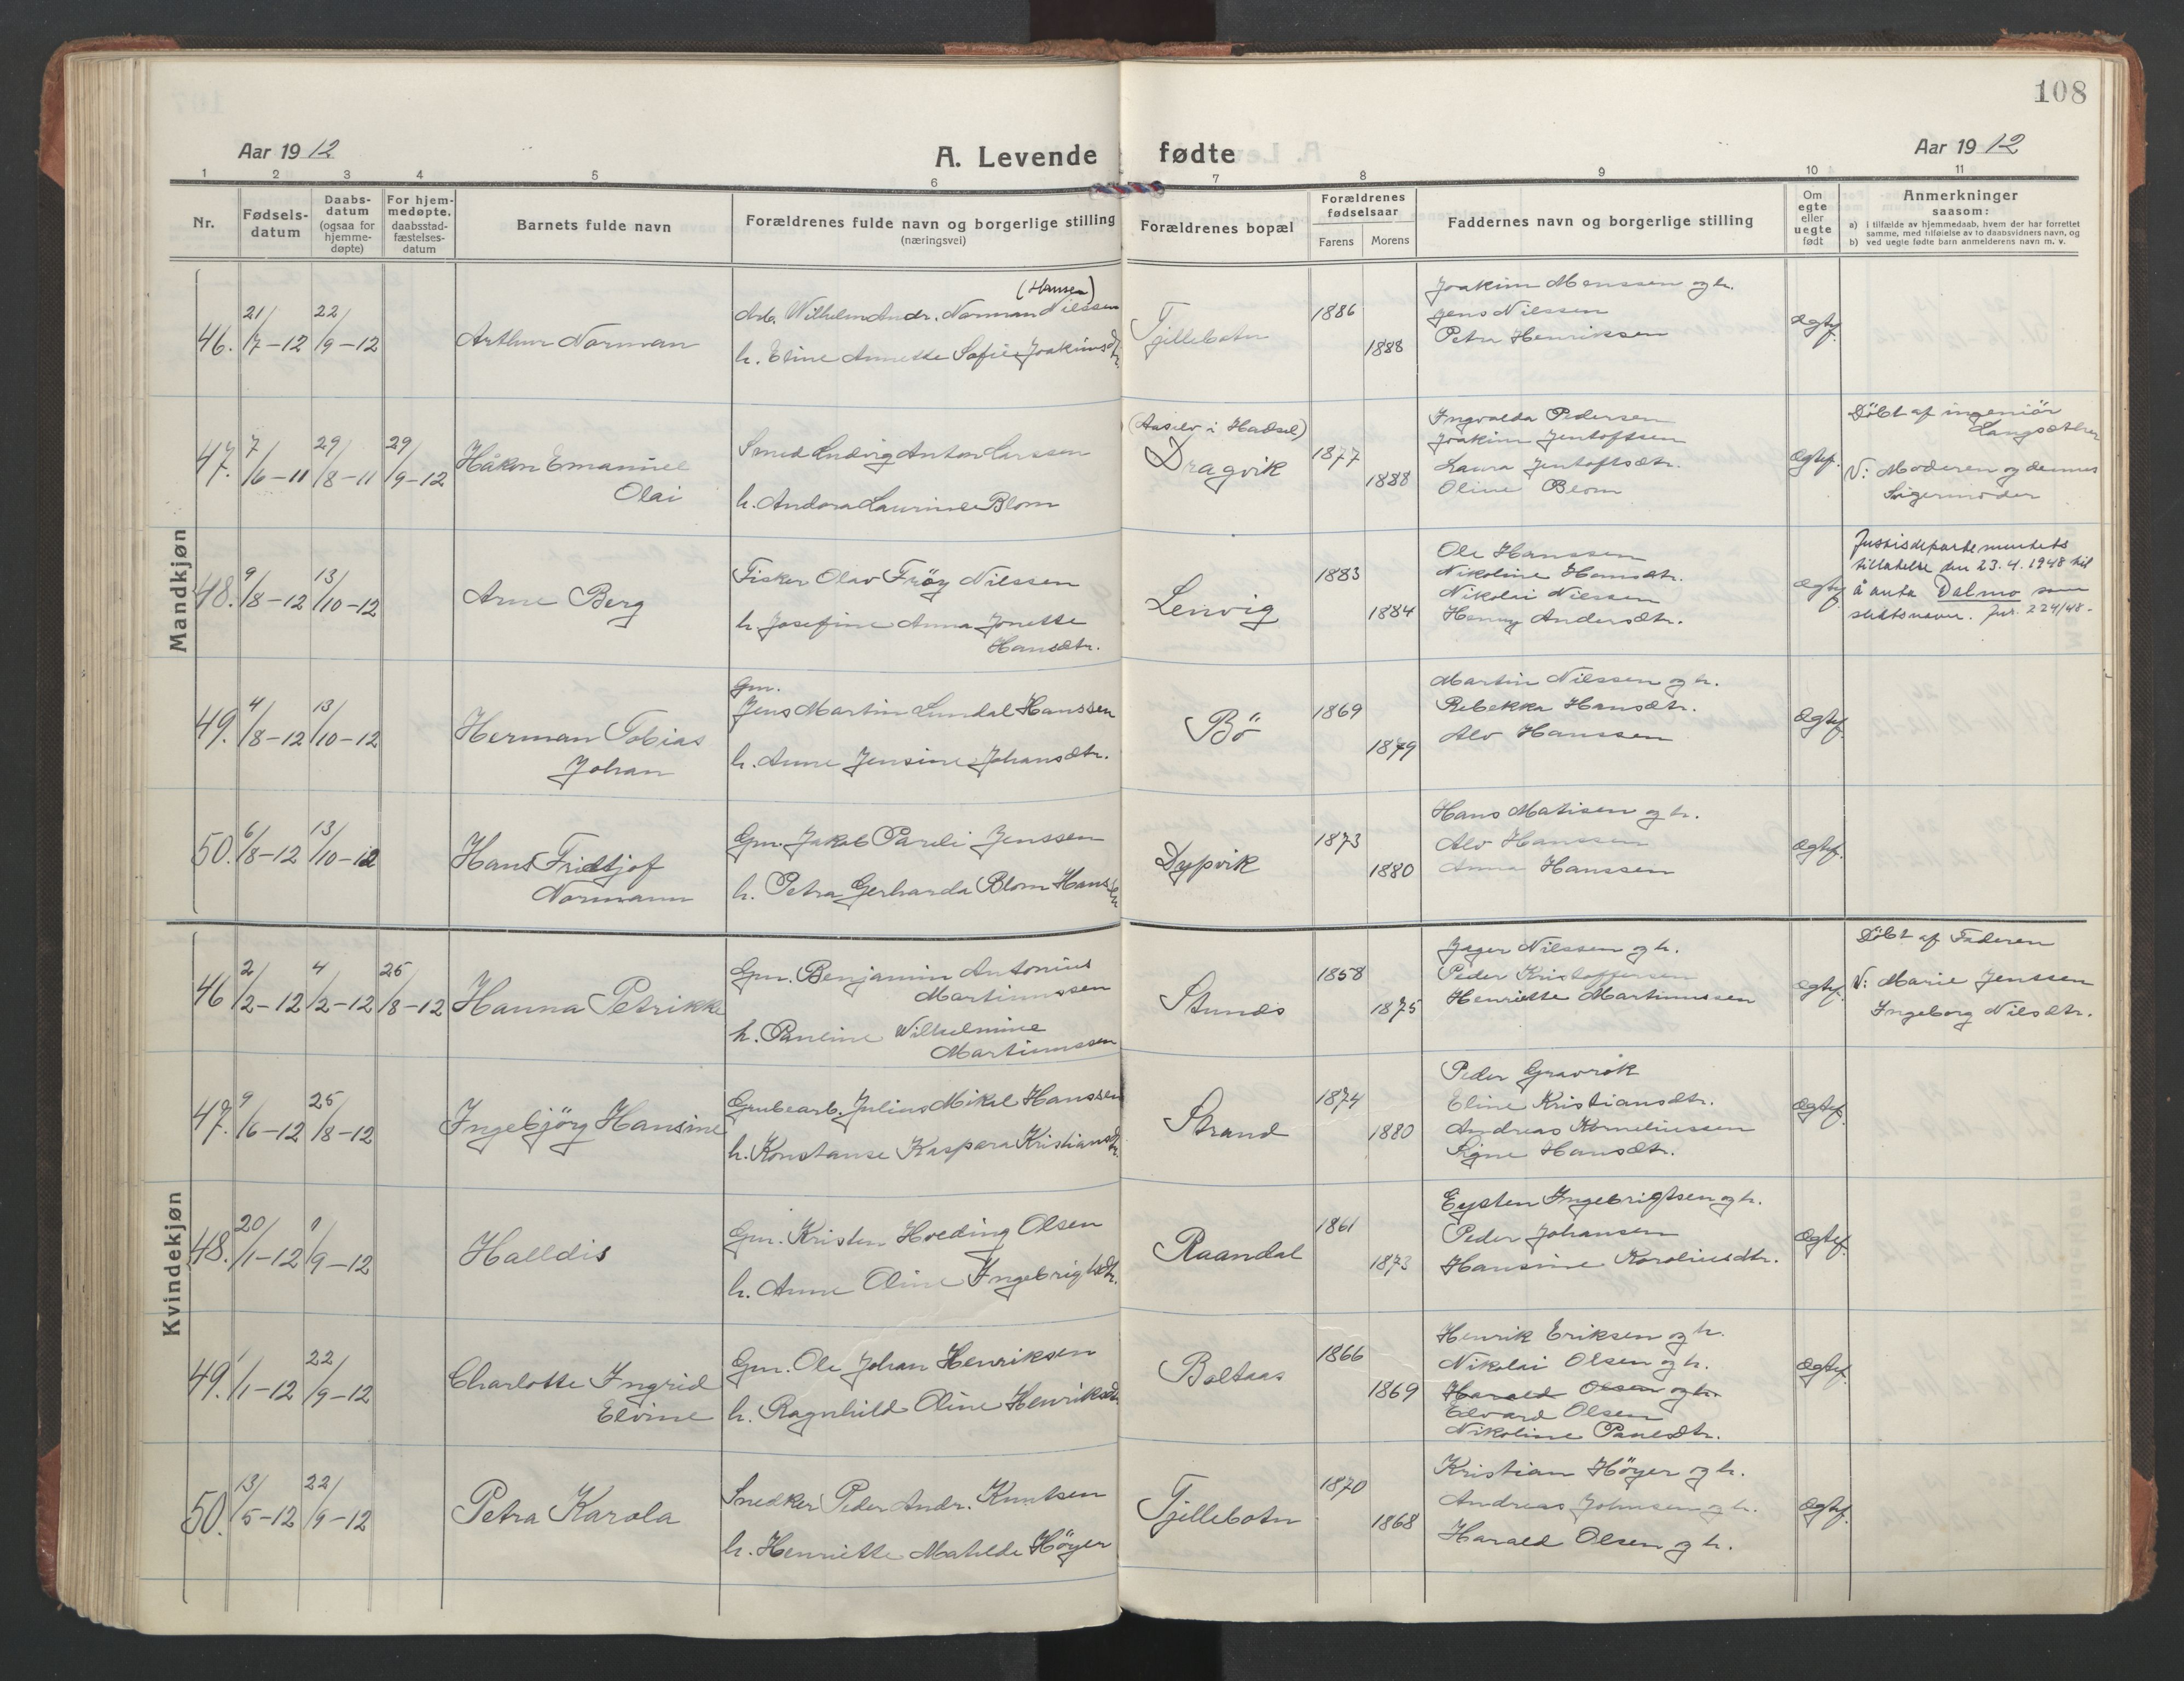 108
Aar 1912
A. Levende fødte
Aar 1912
1 2 3 4 5 6 7 8 9 10 11
Nr.
Fødsels-
datum
Daabs-
datum
(ogsaa for
hjemme-
døpte)
For hjem-
medøpte,
daabsstad-
fæstelses-
datum
Barnets fulde navn
Forældrenes fulde navn og borgerlige stilling
(næringsvei)
Forældrenes bopæl
Forældrenes
fødselsaar
Farens Morens
Faddernes navn og borgerlige stilling
Om
egte
eller
uegte
født
Anmerkninger
saasom:
a) i tilfælde av hjemmedaab, hvem der har forrettet
samme, med tilføielse av to daabsvidners navn, og
b) ved uegte fødte barn anmelderens navn m. v.
Mandkjøn
46. 21/7-12 22/9-12
Arthur Norman
(Hansen)
Arb. Wilhelm Andr. Norman Nilssen
h. Eline Annette Sofie Joakimsdtr.
Tjillebotn
1886
1888
Joakim Monssen og h.
Jens Nilssen
Petra Henriksen
ægtef.
47. 7/6-11 29/8-11 29/9-12
Håkon Emanuel
Olai
Smed Ludvig Anton Larssen
h. Andora Laurinse Blom
(Aaselv i Hadsel)
Dragvik
1877
1888
Ingvalda Pedersen
Joakim Jentoftsen
Laura Jentoftsdtr.
Oline Blom
ægtef.
Döbt af ingeniör
Langsæther
V: Moderen og dennes
Svigermoder
48. 9/8-12 13/10-12
Arne Berg
Fisker Olav Fröy Nilssen
h. Josefine Anna Jonette
Hansdtr.
Lenvig
1883
1884
Ole Hanssen
Nikoline Hansdtr.
Nikolai Nilssen
Henny Andersdtr.
ægtef.
Justisdepartementets
tillatelse den 23.4.1948 til
å anta Dalmo som
slektsnavn. Jnr. 224/48.
49. 4/8-12 13/10-12
Herman Tobias
Johan
Gm.
Jens Martin Lundal Hanssen
h. Anne Jensine Johansdtr.
Bö
1869
1879
Martin Nilssen og h.
Rebekka Hansdtr.
Alv Hanssen
ægtef.
50. 6/8-12 13/10-12
Hans Fridtjof
Normann
Gm. Jakob Pareli Jenssen
h. Petra Gerharda Blom Hanssen
Dypvik
1873
1880
Hans Matisen og h.
Alv Hanssen
Anna Hanssen
ægtef.
Kvindekjøn
46 2/2-12 4/2-12 25/8-12
Hanna Petrikke
Gm. Benjamin Antonius
Martinussen
h. Pauline Wilhelmine
Martinussen
Strunds
1858
1875
Jager Nilssen og h.
Peder Kristoffersen
Henriette Martinussen
ægtef.
Döbt af Faderen
V: Marie Jenssen
Ingeborg Nilsdtr.
47. 9/6-12 25/8-12
Ingebjörg Hansine
Grubearb. Julius Mikal Hanssen
h. Konstanse Kaspara Kristiansdtr.
Strand
1874
1880
Peder Gravrok
Eline Kristiansdtr.
Andreas Korneliussen
Signe Hansdtr.
ægtef.
48. 20/1-12 /9-12
Halldis
Gm. Kristen Hveding Olsen
h. Anne Oline Ingebrigtsdtr.
Raandal
1861
1873
Eysten Ingebrigtsen og h.
Peder Johansen
Hansine Karoliusdtr.
ægtef.
49. 1/1-12 22/9-12
Charlotte Ingrid
Elvine
Gm. Ole Johan Henriksen
h. Ragnhild Oline Henriksdtr.
Boltaas
1866
1869
Henrik Eriksen og h.
Nikolai Olsen og h.
Harald Olsen og h.
Edvard Olsen
Nikoline Paulsdtr.
ægtef.
50. 13/5-12 22/9-12
Petra Karola
Snedker Peder Andr. Knutsen
h. Henriette Matilde Höyer
Tjillebotn
1870
1868
Kristian Höyer og h.
Andreas Johnsen og h.
Harald Olsen og h.
ægtef.